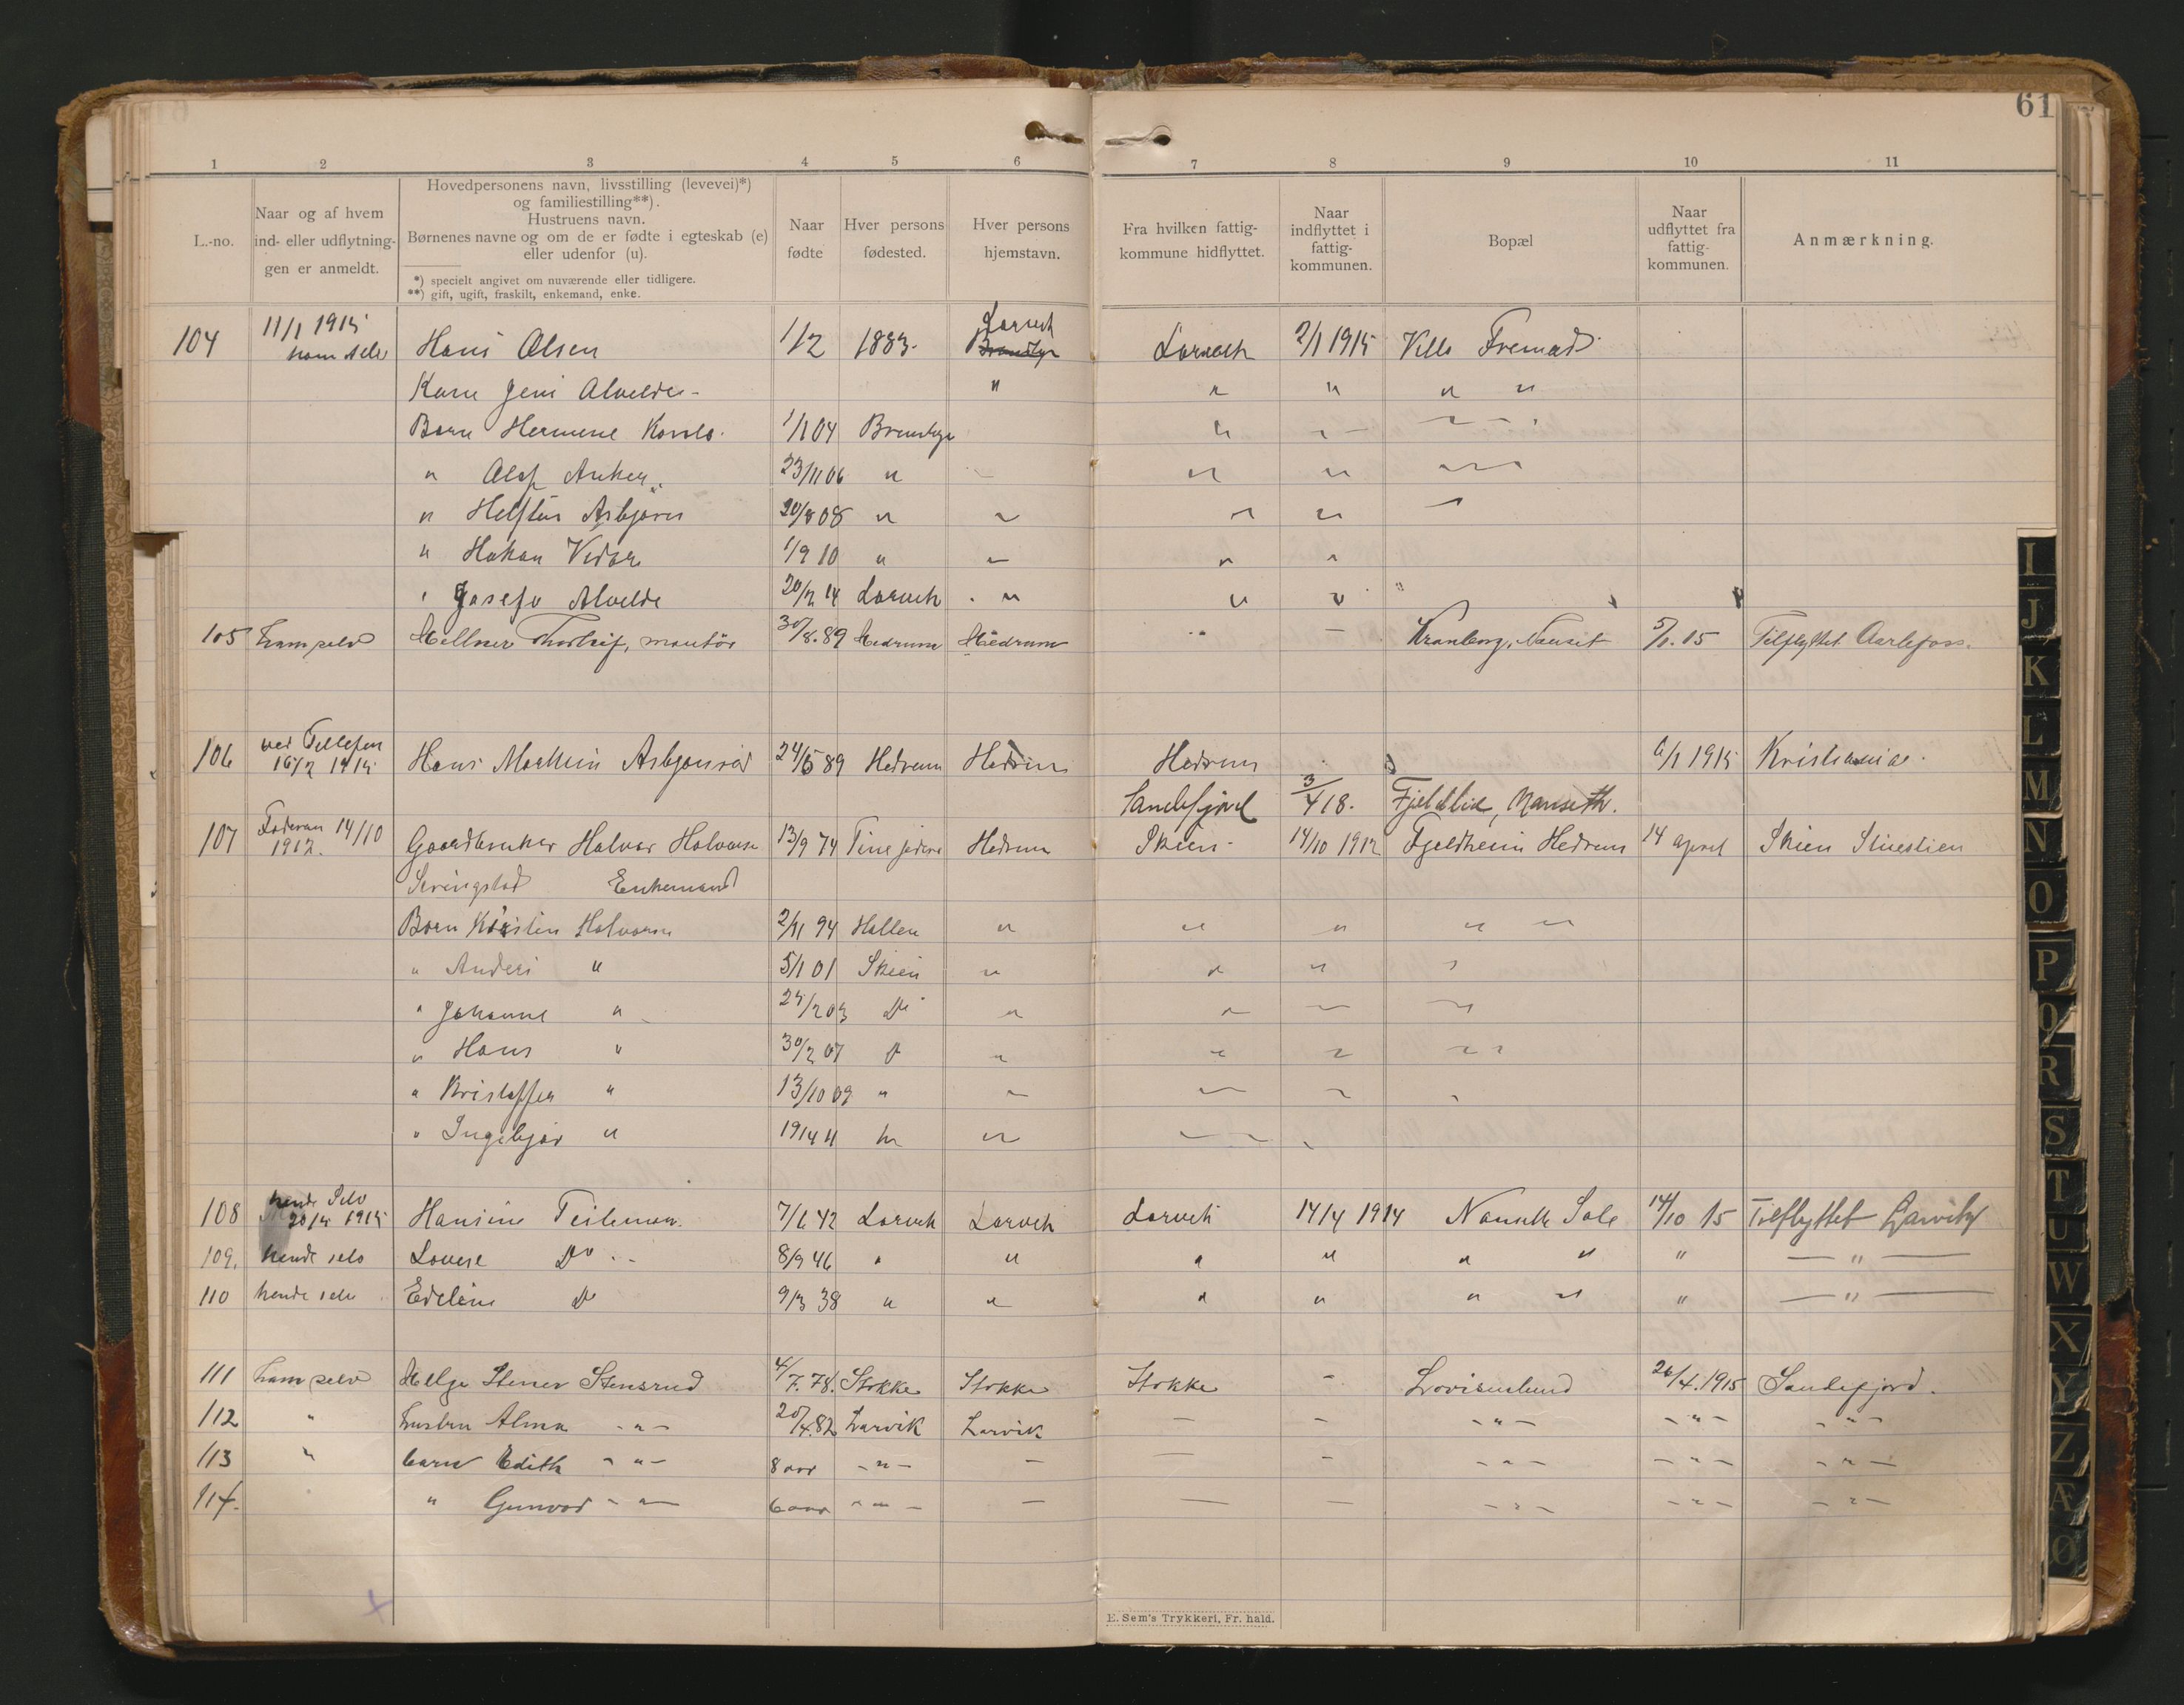 61
1 2 3 4 5 6 7 8 9 10 11
L.-no.
Naar og af hvem
ind- eller udflytnin-
gen er anmeldt.
Hovedpersonens navn, livsstilling (levevei)*)
og familiestilling**).
Hustruens navn.
Børnenes navne og om de er fødte i egteskab (e)
eller udenfor (u).
*) specielt angivet om nuværende eller tidligere.
**) gift, ugift, fraskilt, enkemand, enke.
Naar
fødte
Hver persons
fødested.
Hver persons
hjemstavn.
Fra hvilken fattig-
kommune hidflyttet.
Naar
indflyttet i
fattig-
kommunen.
Bopæl
Naar
udflyttet fra
fattig-
kommunen.
Anmærkning.
104 11/1 1915 Hans Olsen 1/2 1883. Larvik Larvik 2/1 1915 Villa Fremad
" " " " "
Barn Hermine 1/1 04
" Olaf Anker 23/11 06 " " "
" Asbjørn 20/8 08 " " " "
" Hakon Vidar 1/9 10 " " " "
" Josefo Alvilde 20/2 14 Larvik " " "
105 ham selv Thorleif, montør 30/8.89 Hedrum Hedrum Kranborg, Nanset 5/1.15 Tilflyttet Aarlifoss.
106 ved Tellefon 16/2 1915 Hans Martin Asbjonrød 24/5 89 Hedrum Hedrum Hedrum 6/1 1915 Kristiania.
Sandefjord 3/4 18. Fjeldlid, Nanseth.
107 14/10 1912. Gaardbruker Halvor Halvorsen 13/9 74 Hedrum Skien 14/10 1912 Fjeldheim Hedrum 14 april Skien
Enkemand
Barn Kirstin Halvorsen 2/11 94 Hallen " " " " "
" Anders " 5/1 01 Skien " " " "
" Johanne " 24/2 03 Do " " " "
" Hans " 30/2 07 Do " " " "
" Kristoffer " 13/10 09 " " " " "
" Ingebjør " "
108 hende Selv 20/4 1915 Hansine Teilman. 7/1 42 Larvik Larvik Larvik 14/4 1914 Nanseth Sole 14/10 15 Tilflyttet Larvik
109. hende selv Lovise Do 8/9 46 " " " " " " " "
110 hende selv Edeline Do 9/3 38 " " " " " " " "
111 ham selv Helge Stener Stensrud 4/7.78. Stokke Stokke Stokke - Lovisenlund 26/4.1915 Sandefjord.
112 " hustru Alma -"- 20/4.82 Larvik Larvik - - -"- -"- -"-
113 " barn Edith -"- 8 aar -"- - - - -"- -"- -"-
114. " Gunvor -"- 6 aar -"- - - - -"- -"- -"-
E. Sem's Trykkeri, Fr. hald.
I
J
K
L
M
N
O
P
Q
R
S
T
U
W
X
Y
Z
Æ
Ø